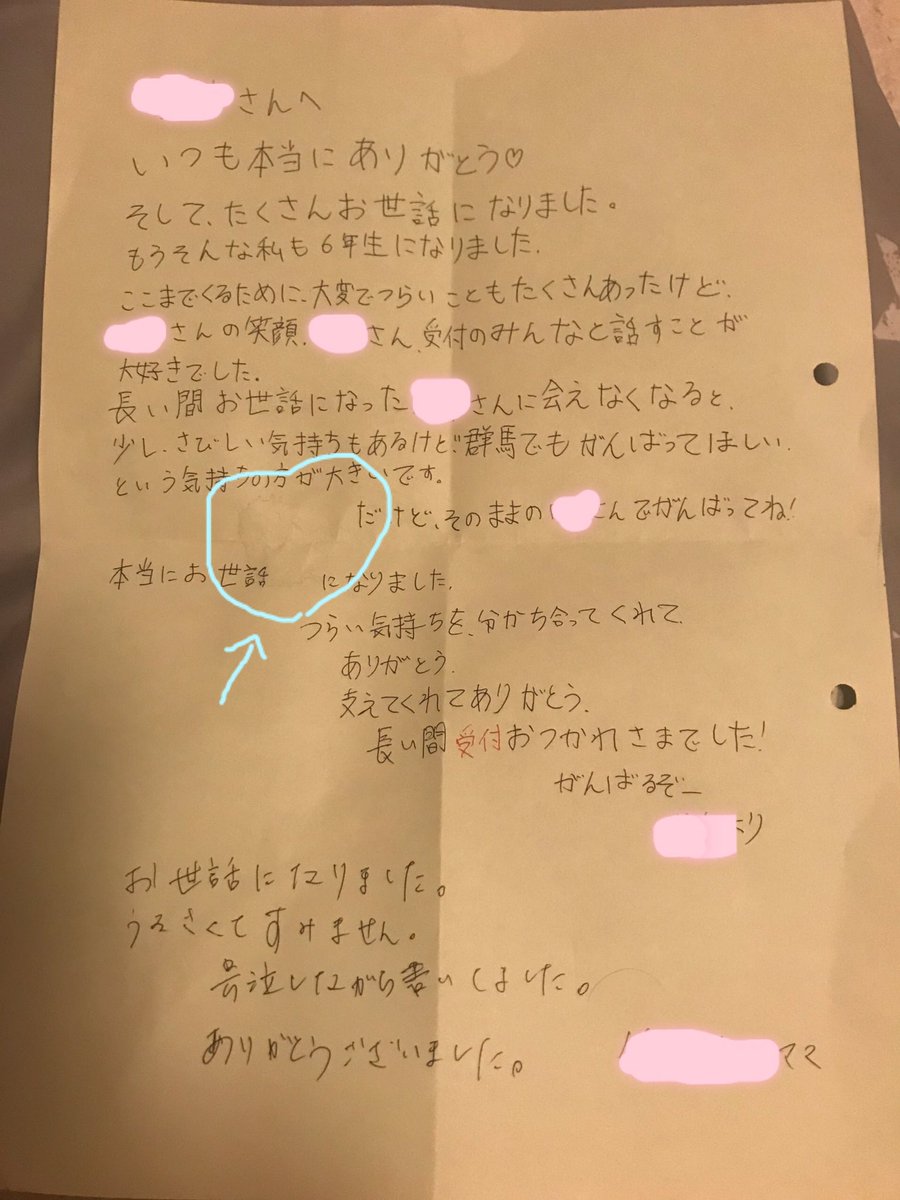 さんへ
いつも本当にありがとう♡
そして、たくさんお世話になりました。
もうそんな私も6年生になりました.
ここまでくるために、大変でつらいこともたくさんあったけど、
さんの笑顔、さん、受付のみんなと話すことが
大好きでした.
長い間お世話になったさんに会えなくなると、
少し、さびしい気持ちもあるけど、群馬でもがんばってほしい
という気持ちの方が大きいです。
だけど、そのままのさんでがんばってね!
本当にお世話になりました.
つらい気持ちを、分かち合ってくれて、
ありがとう.
支えてくれてありがとう.
長い間受付おつかれさまでした!
がんばるぞー
より
お世話になりました。
うるさくてすみません。
号泣しながら書いしました。
ありがとうございました。
ママ